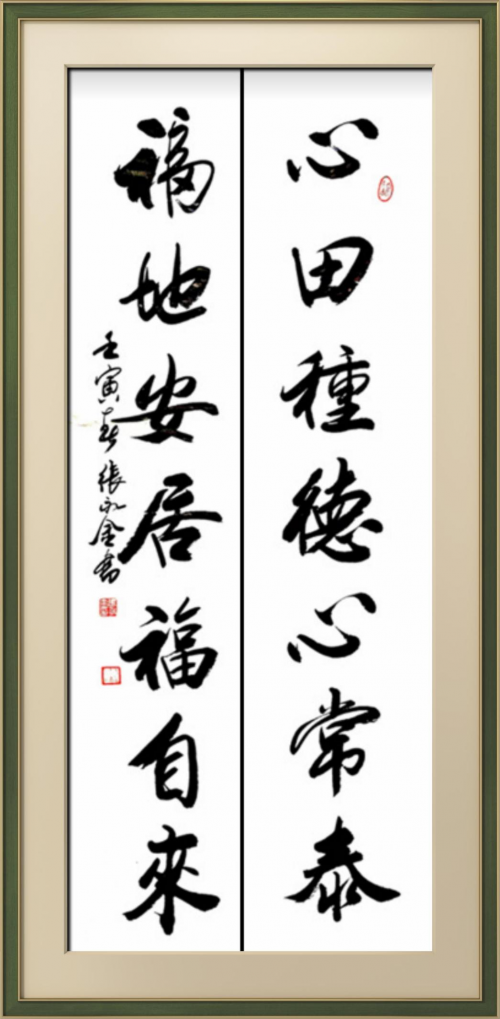 心田種德心常泰
福地安居福自來
壬寅春張永金書